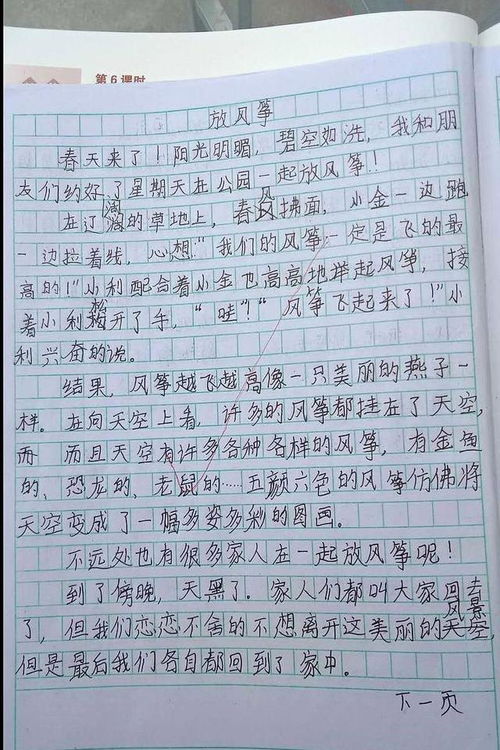 第6课时
放风筝
春天来了！阳光明媚，碧空如洗，我和朋
友们约好了星期天在公园一起放风筝！！
在辽阔的草地上，春风拂面，小金一边跑
一边拉着线，心想：“我们的风筝一定是飞的最
高的！”小利配合着小金也高高地举起风筝，接
着小利松开了手，“哇”！“风筝飞起来了！”小
利兴奋的说。
结果，风筝越飞越高像一只美丽的燕子一
样。在向天空上看，许多的风筝都挂在了天空，
而 而且天空有许多各种各样的风筝，有金鱼
的、恐龙的、老鼠的……五颜六色的风筝仿佛将
天空变成了一幅多姿多彩的图画。
不远处也有很多家人在一起放风筝呢！
到了傍晚，天黑了．家人们都叫大家回去
了，但我们恋恋不舍的不想离开这美丽的风景
但是最后我们各自都回到了家中。
下一页